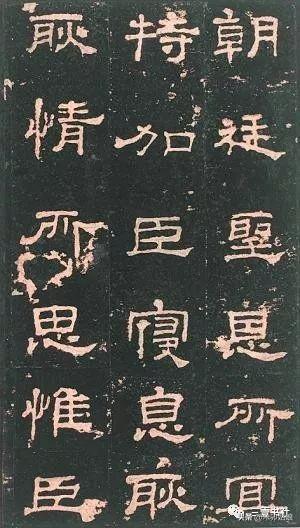 朝廷聖恩所宜
特加臣寢息耿
耿情所思惟臣